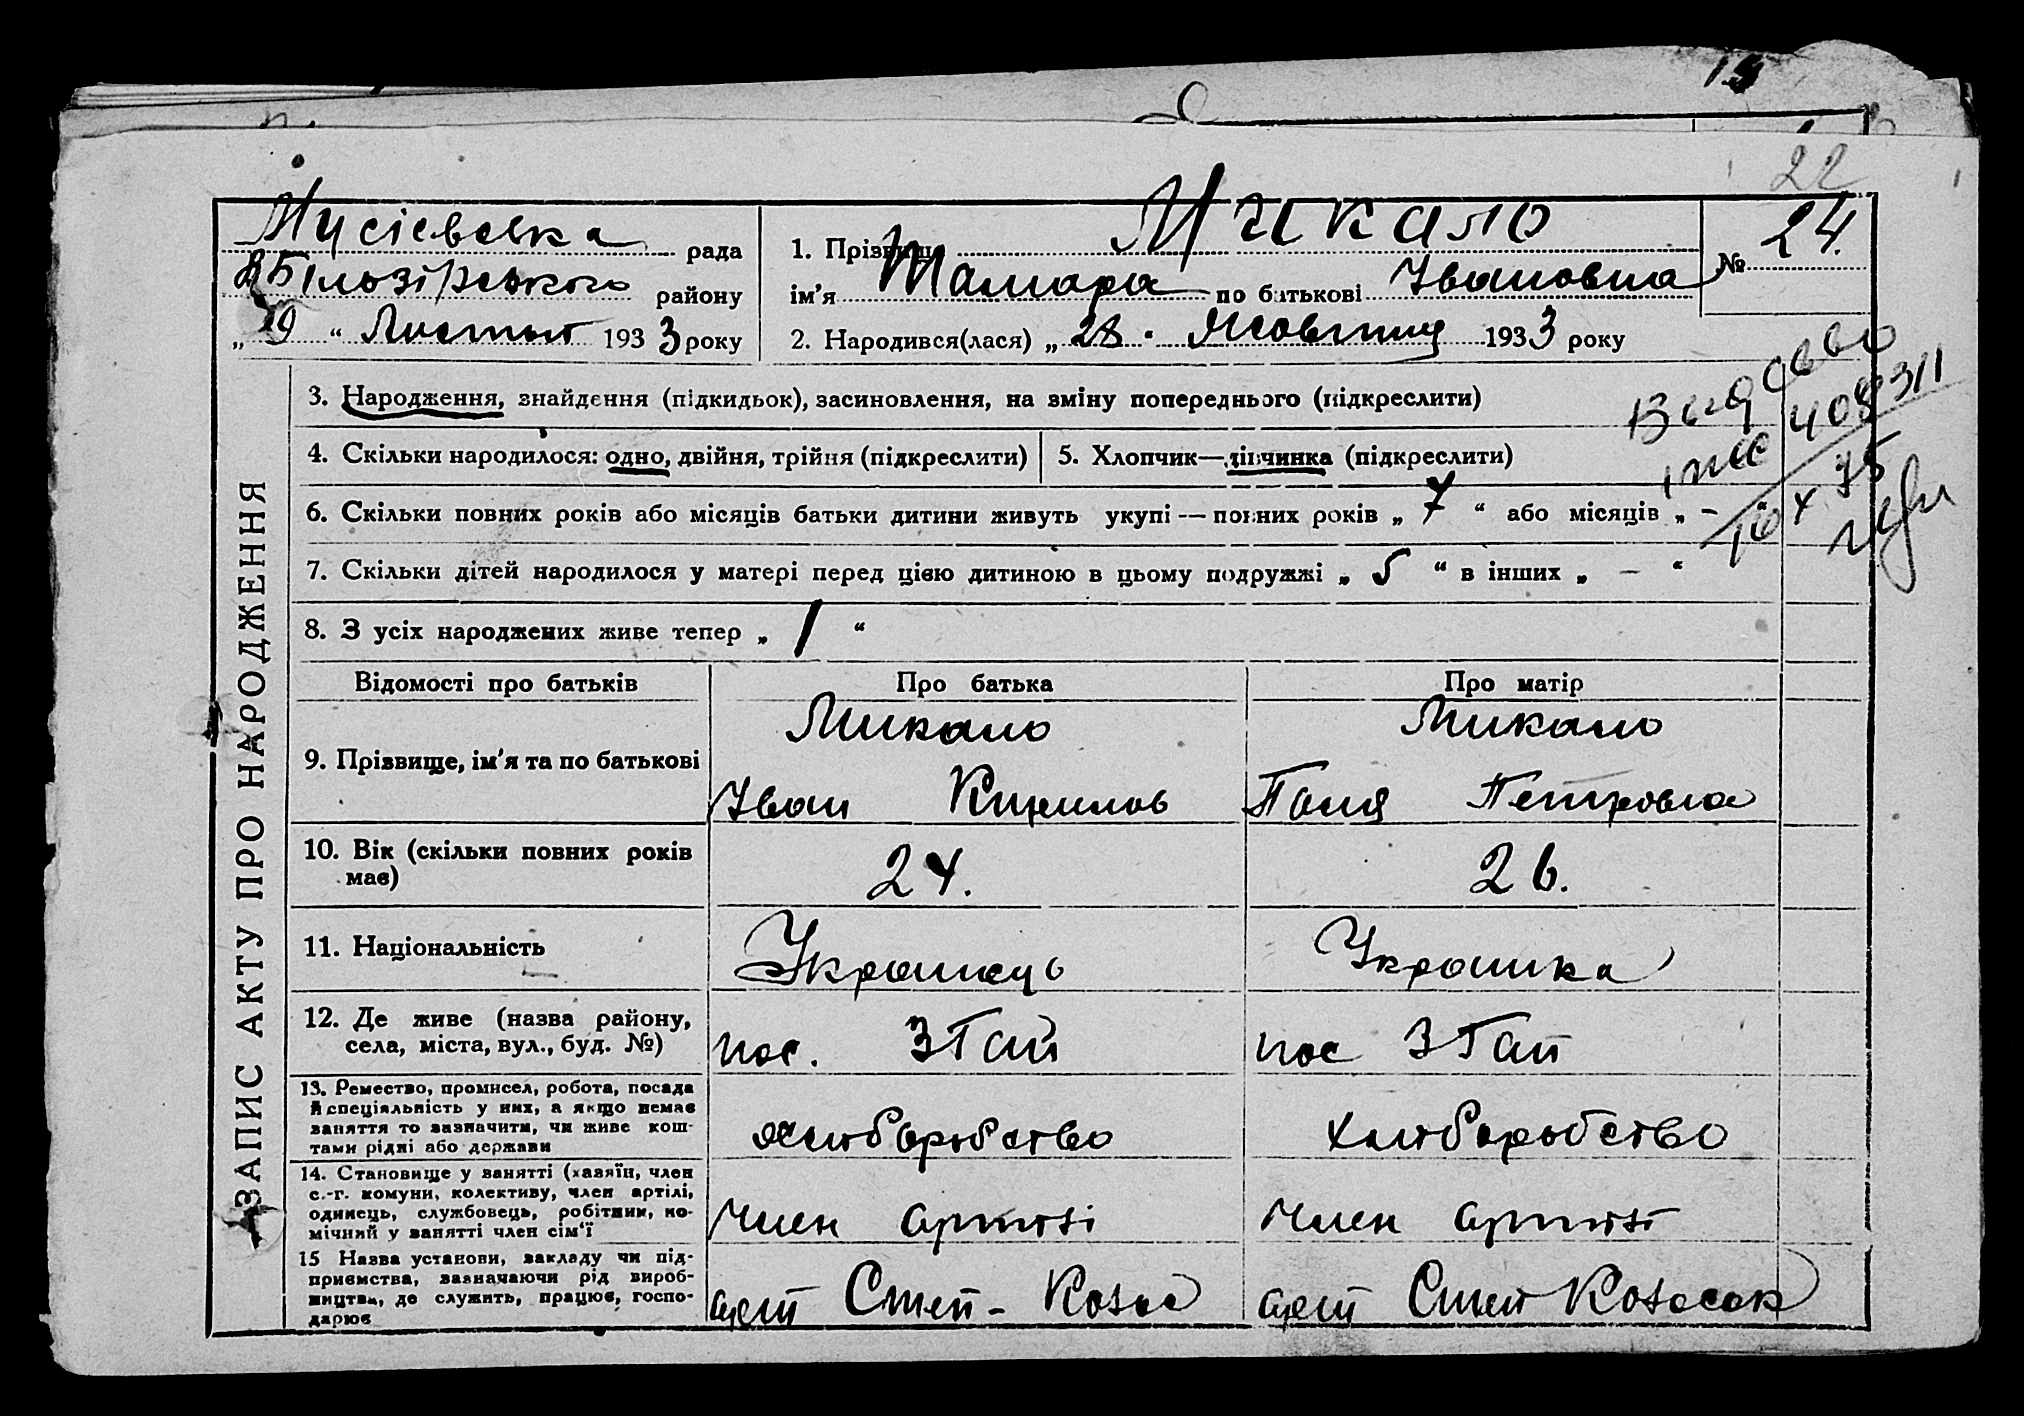 19
22
Мусієвська рада
Білозірського району
„ 9 “ Листоп 1933 року
1. Прізвище Микало
ім'я Тамара по батькові Івановна
2. Народився(лася) „ 28. Жовтня 1933 року
№ 24.
Выдано
408311
10 х 75
ЗАПИС АКТУ ПРО НАРОДЖЕННЯ
3. Народження, знайдення (підкидьок), засиновлення, на зміну попереднього (підкреслити)
4. Скільки народилося: одно, двійня, трійня (підкреслити)
5. Хлопчик—дівчинка (підкреслити)
6. Скільки повних років або місяців батьки дитини живуть укупі — повних років „ 7 “ або місяців „ – “
7. Скільки дітей народилося у матері перед цією дитиною в цьому подружжі „ 5 “ в інших „ — “
8. З усіх народжених живе тепер „ 1 “
Відомості про батьків
Про батька
Про матір
9. Прізвище, ім'я та по батькові
Микало
Іван Кирилов
Микало
Паня Петровна
10. Вік (скільки повних років
має)
24.
26.
11. Національність
Украинець
Украинка
12. Де живе (назва району,
села, міста, вул., буд. №)
пос. ЗГай
пос ЗГай
13. Ремество, промисел, робота, посада
й спеціяльність у них, а якщо немає
заняття то зазначити, чи живе кош-
тами рідні або держави
хлιборобство
хлιборобство
14. Становище у занятті (хазяїн, член
с.-г. комуни, колективу, член артілі,
одинець, службовець, робітник, по-
мічний у занятті член сім'ї
член артілі
член артілі
15 Назва установи, закладу чи під-
приємства, зазначаючи рід вироб-
ництва, де служить, працює, госпо-
дарює
арт Степ-
арт Степ